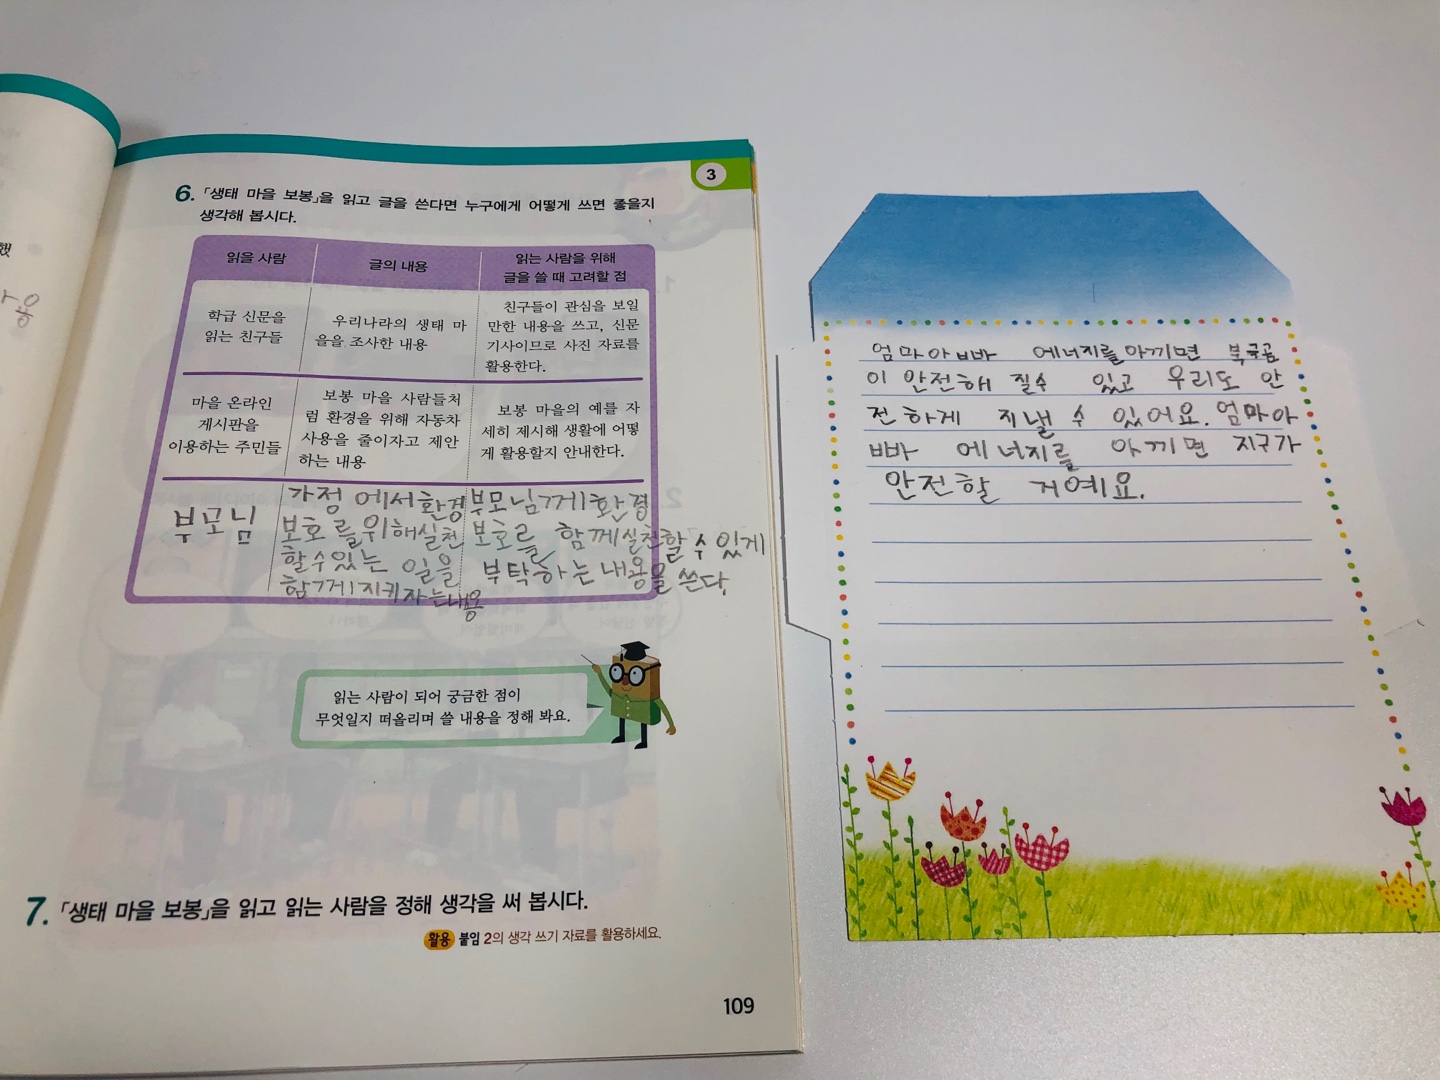 3
6. 「생태 마을 보봉」을 읽고 글을 쓴다면 누구에게 어떻게 쓰면 좋을지
생각해 봅시다.
읽을 사람
글의 내용
읽는 사람을 위해
글을 쓸 때 고려할 점
학급 신문을
읽는 친구들
우리나라의 생태 마
을을 조사한 내용
친구들이 관심을 보일
만한 내용을 쓰고, 신문
기사이므로 사진 자료를
활용한다.
마을 온라인
게시판을
이용하는 주민들
보봉 마을 사람들처
럼 환경을 위해 자동차
사용을 줄이자고 제안
하는 내용
보봉 마을의 예를 자
세히 제시해 생활에 어떻
게 활용할지 안내한다.
부모님
가정 에서 환경
보호를 위해 실천
할 수 있는 일을
함께 지키자는 내용
부모님께 환경
보호를 함께 실천할 수 있게
부탁하는 내용을 쓴다.
읽는 사람이 되어 궁금한 점이
무엇일지 떠올리며 쓸 내용을 정해 봐요.
7. 「생태 마을 보봉」을 읽고 읽는 사람을 정해 생각을 써 봅시다.
활용 붙임 2의 생각 쓰기 자료를 활용하세요.
109
엄마아빠 에너지를 아끼면 북극곰
이 안전해 질수 있고 우리도 안
전하게 지낼 수 있어요. 엄마아
빠 에너지를 아끼면 지구가
안전할 거예요.